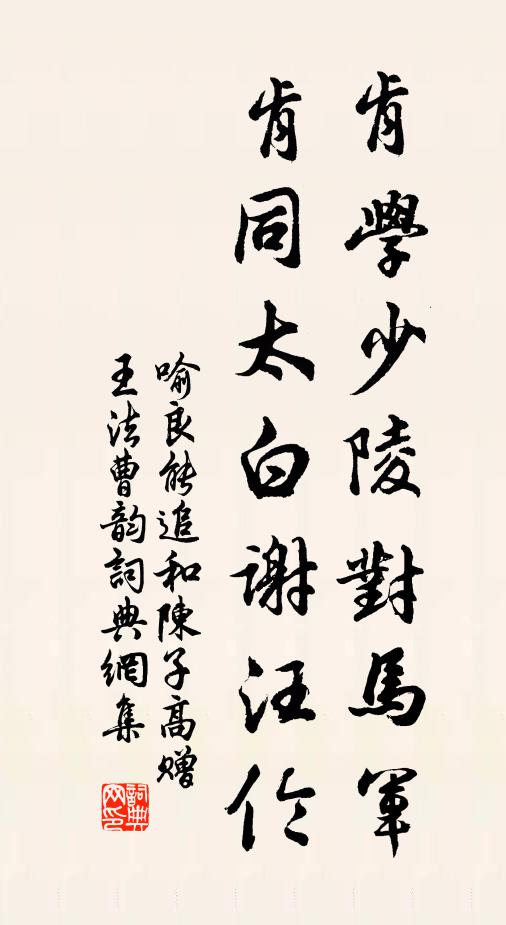 肯學少陵對馬軍
肯同太白谢汪伦
喻良能追和陳子高赠
王法曹韵詞典網集
詞典网印